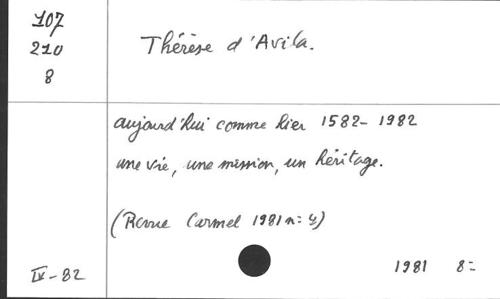 107
210
8
Thérèse d'Avila.
aujourd'hui comme hier 1582-1982
une vie, une mission, un héritage.
(Revue Carmel 1981 n= 4)
IV-82
1981 8=